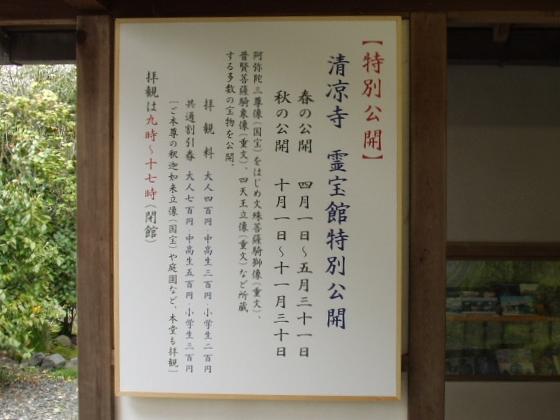 【特別公開】
清凉寺　霊宝館特別公開
春の公開　四月一日～五月三十一日
秋の公開　十月一日～十一月三十日
阿弥陀三尊像（国宝）をはじめ文殊菩薩騎獅像（重文）、
普賢菩薩騎象像（重文）、四天王立像（重文）など所蔵
する多数の宝物を公開。
拝観料　大人四百円・中高生三百円・小学生二百円
共通割引券　大人七百円・中高生五百円・小学生三百円
［ご本尊の釈迦如来立像（国宝）や庭園など、本堂も拝観］
拝観は九時～十七時（閉館）